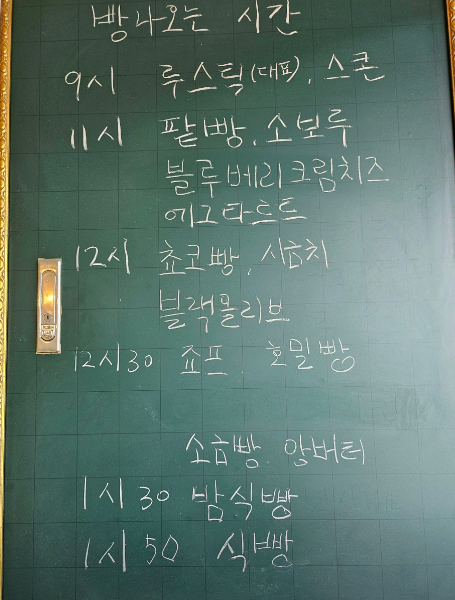 빵 나오는 시간
9시 루스틱(대표), 스콘
11시 팥빵, 소보루
블루베리크림치즈
에그타르트
12시 쵸코빵, 시금치
블랙올리브
12시30 죠프, 호밀빵
소금빵, 앙버터
1시 30 밤식빵
1시 50 식빵